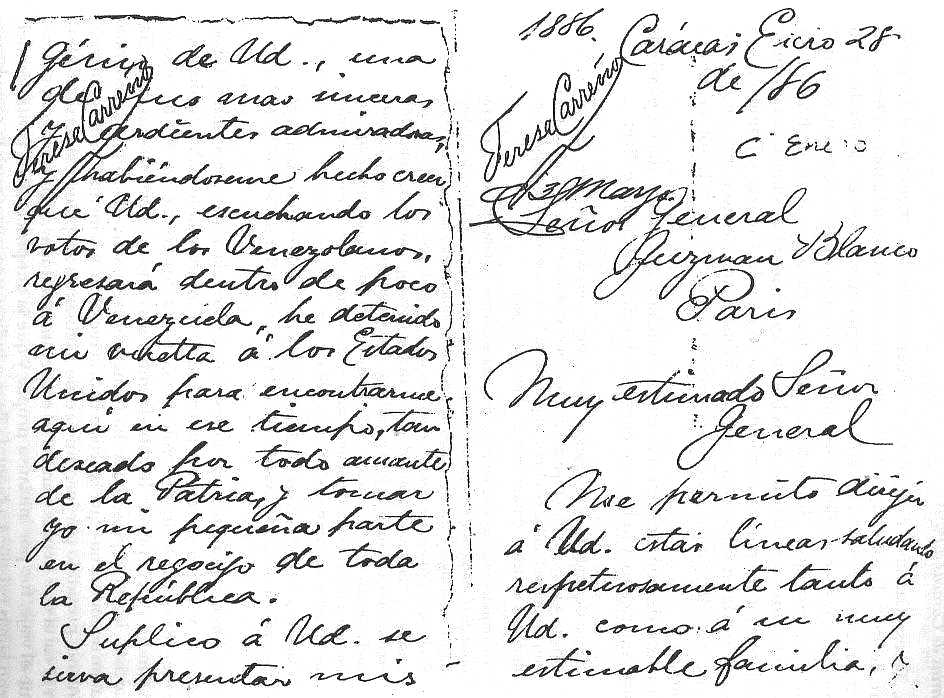 1886.
Carácas Enero 28
de /86
Teresa Carreño
C Enero
3 Mayo
Señor General
Guzman Blanco
Paris
Muy estimado Señor
General
Me permito dirijir
á Ud. estas líneas saludando
respetuosamente tanto á
Ud. como á su muy
estimable familia, y
génio de Ud., una
de sus mas sinceras
y ardientes admiradoras,
Teresa Carreño
y habiéndoseme hecho creer
que Ud., escuchando los
votos de los Venezolanos,
regresará dentro de poco
á Venezuela, he detenido
mi vuelta á los Estados
Unidos para encontrarme
aquí en ese tiempo, tan
deseado por todo amante
de la Patria, y tomar
yo mi pequeña parte
en el regocijo de toda
la República.
Suplico á Ud. se
sirva presentar mis